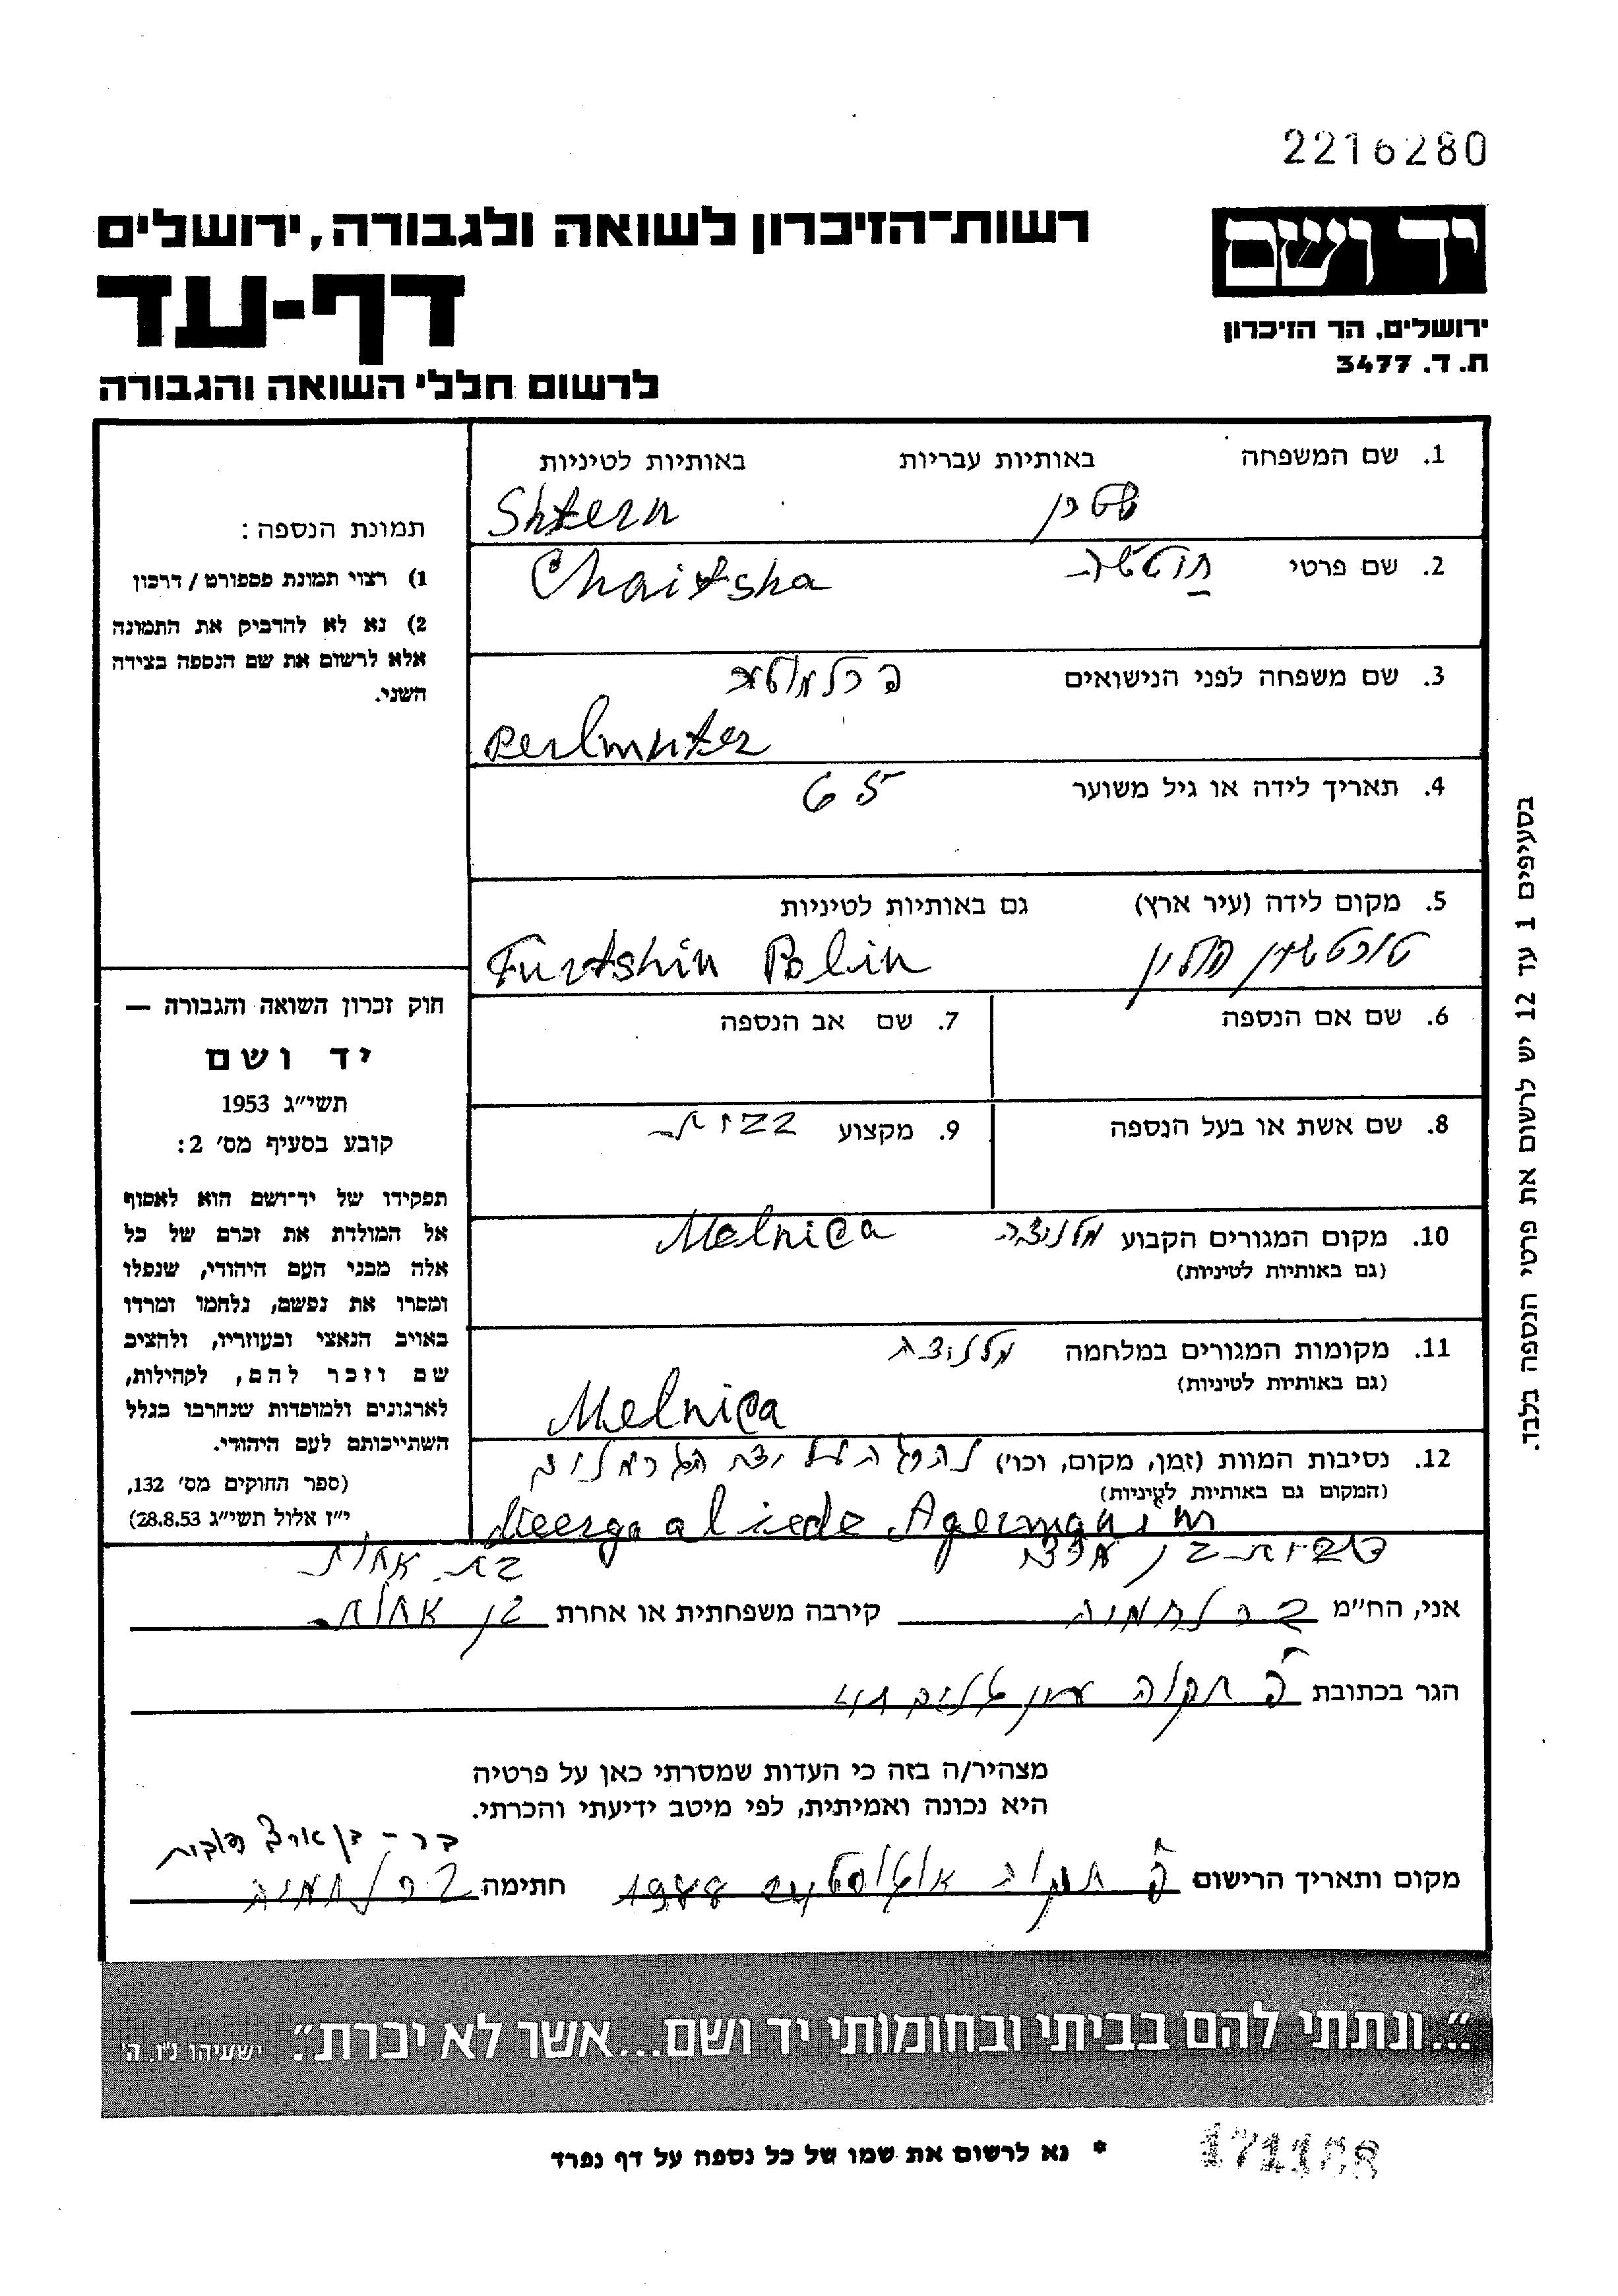 2216280
רשות-הזיכרון לשואה ולגבורה, ירושלים
יד ושם
דף-עד
ירושלים, הר הזיכרון
ת. ד. 3477
לרשום חללי השואה והגבורה
1. שם המשפחה באותיות עבריות באותיות לטיניות
שטרן Shtern
2. שם פרטי Chaitsha
3. שם משפחה לפני הנישואים
Perlmuter
4. תאריך לידה או גיל משוער 65
5. מקום לידה (עיר ארץ) גם באותיות לטיניות
טורטשין פולין Turtshin Polin
6. שם אם הנספה 7. שם אב הנספה
8. שם אשת או בעל הנספה 9. מקצוע
10. מקום המגורים הקבוע מלניצה Melnica
(גם באותיות לטיניות)
11. מקומות המגורים במלחמה מלניצה
(גם באותיות לטיניות)
Melnica
12. נסיבות המוות (זמן, מקום, וכו') נהרגה על ידי הגרמנים
(המקום גם באותיות לטיניות)
בת אחות
אני, הח"מ קירבה משפחתית או אחרת בן אחות
הגר בכתובת פ תקוה
מצהיר/ה בזה כי העדות שמסרתי כאן על פרטיה
היא נכונה ואמיתית, לפי מיטב ידיעתי והכרתי.
מקום ותאריך הרישום פ תקוה אוגוסט 1988 חתימה
תמונת הנספה:
1) רצוי תמונת פספורט / דרכון
2) נא לא להדביק את התמונה
אלא לרשום את שם הנספה בצידה
השני.
חוק זכרון השואה והגבורה —
יד ושם
תשי"ג 1953
קובע בסעיף מס' 2:
תפקידו של יד-ושם הוא לאסוף
אל המולדת את זכרם של כל
אלה מבני העם היהודי, שנפלו
ומסרו את נפשם, נלחמו ומרדו
באויב הנאצי ובעוזריו, ולהציב
שם וזכר להם, לקהילות,
לארגונים ולמוסדות שנחרבו בגלל
השתייכותם לעם היהודי.
(ספר החוקים מס' 132,
י"ז אלול תשי"ג 28.8.53)
בסעיפים 1 עד 12 יש לרשום את פרטי הנספה בלבד.
"...ונתתי להם בביתי ובחומותי יד ושם...אשר לא יכרת". ישעיהו נ"ו. ה'
* נא לרשום את שמו של כל נספה על דף נפרד